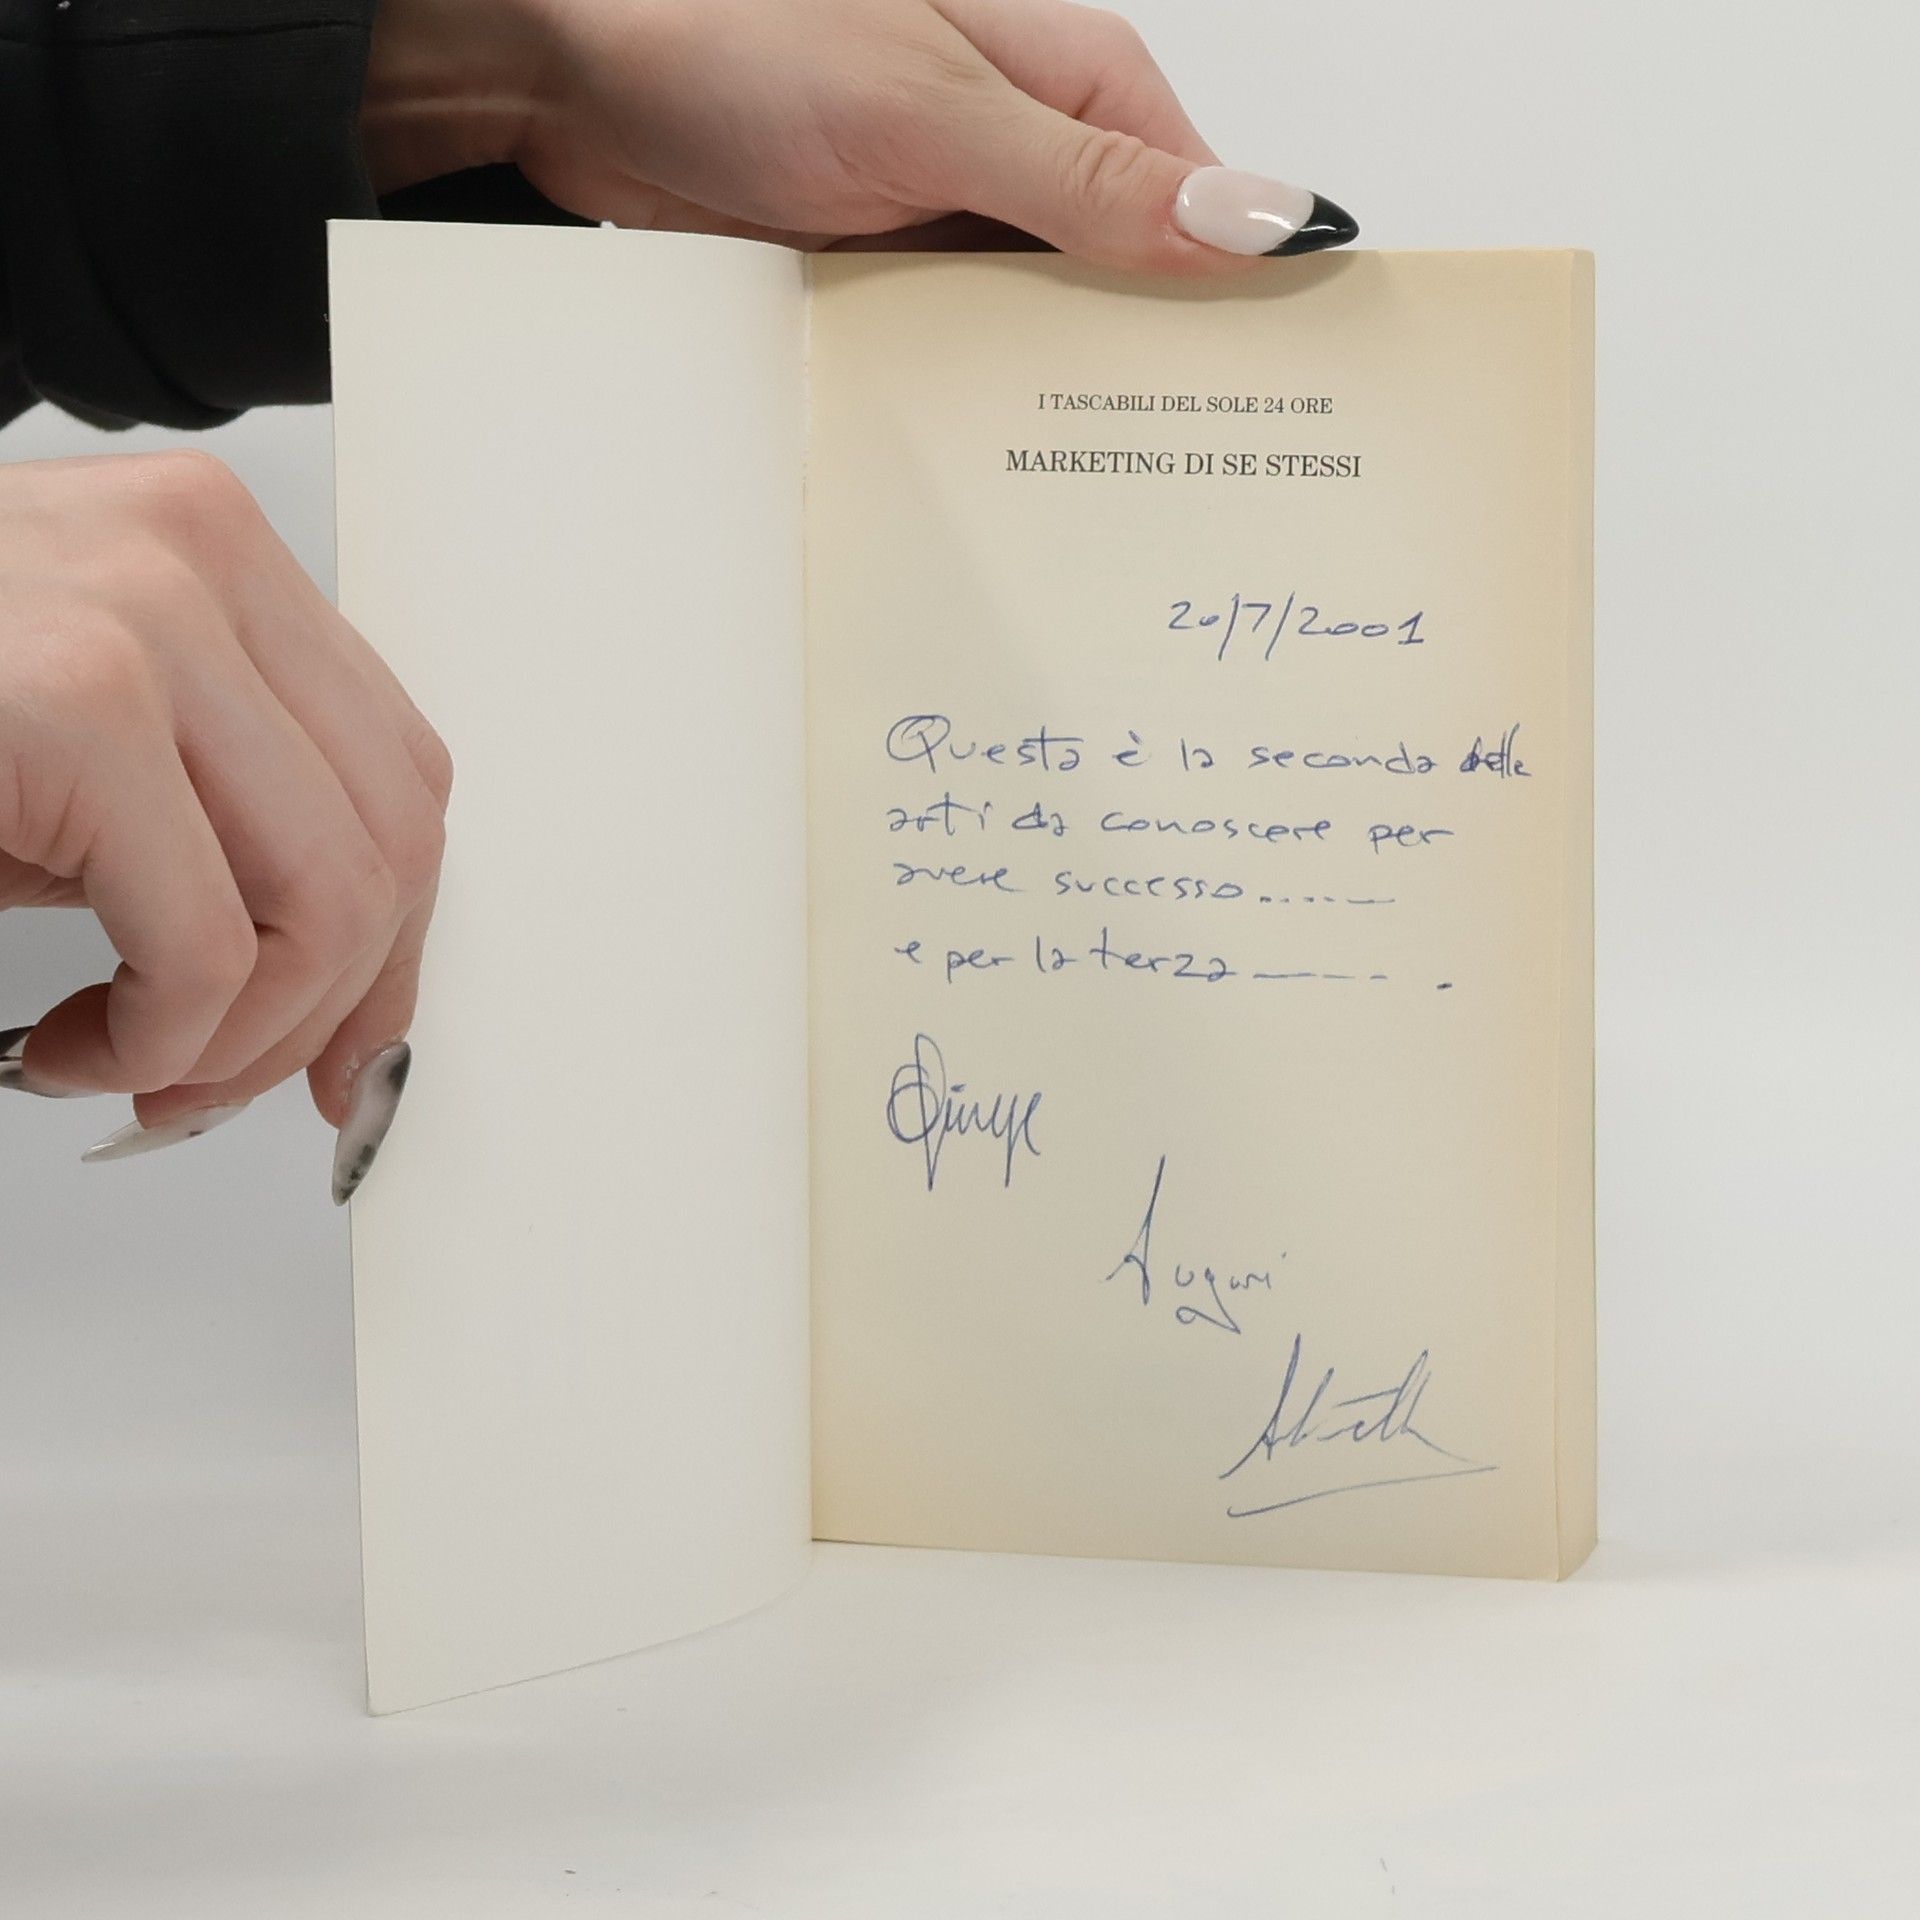 I TASCABILI DEL SOLE 24 ORE
MARKETING DI SE STESSI
20/7/2001
Questa è la seconda delle
arti da conoscere per
avere successo......
e per la terza ---- .
Auguri